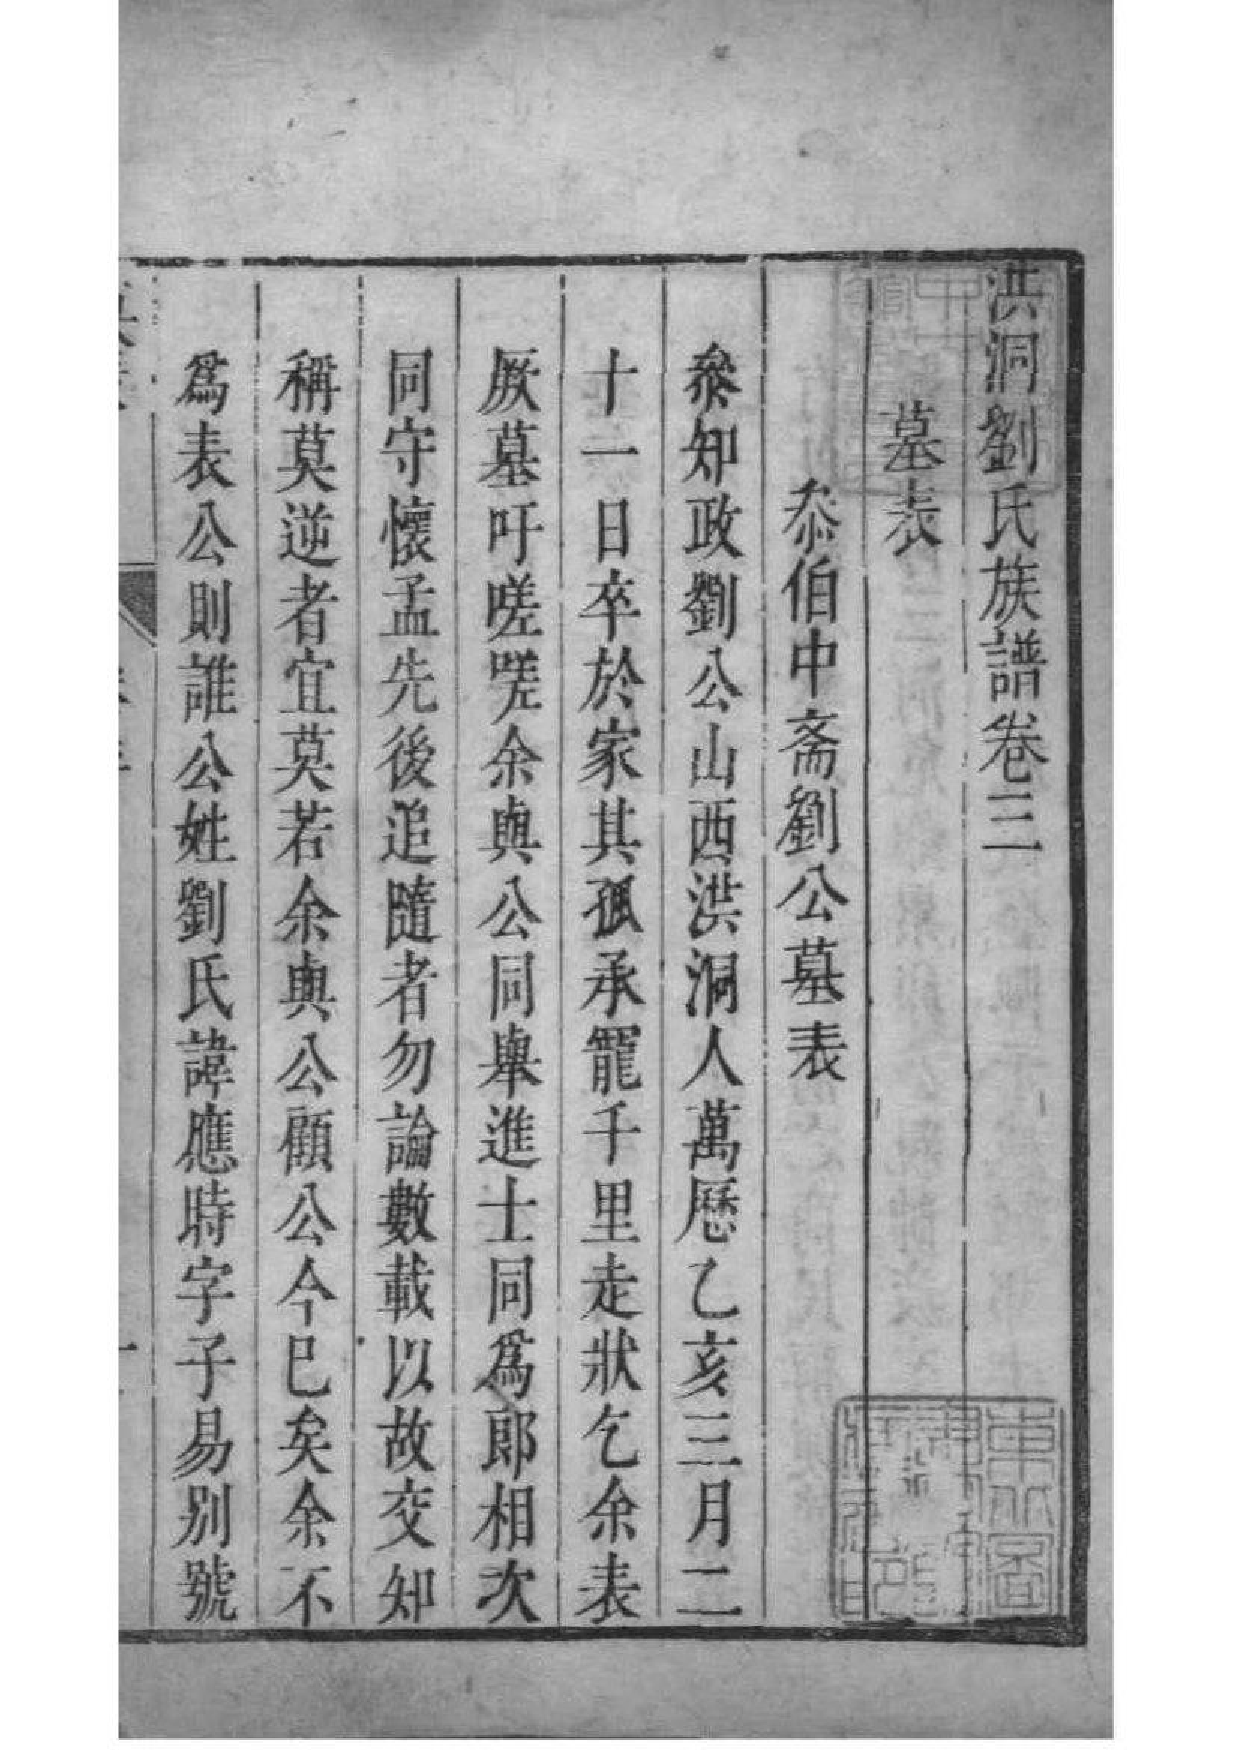 洪洞劉氏族譜卷三
墓表
叅伯中斎劉公墓表
叅知政劉公山西洪洞人萬厯乙亥三月二
十一日卒於家其孤承寵千里走狀乞余表
厥墓吁嗟嗟余與公同舉進士同爲郎相次
同守懷孟先後追隨者勿論數載以故交知
稱莫逆者宜莫若余與公顧公今已矣余不
爲表公則誰公姓劉氏諱應時字子易别號